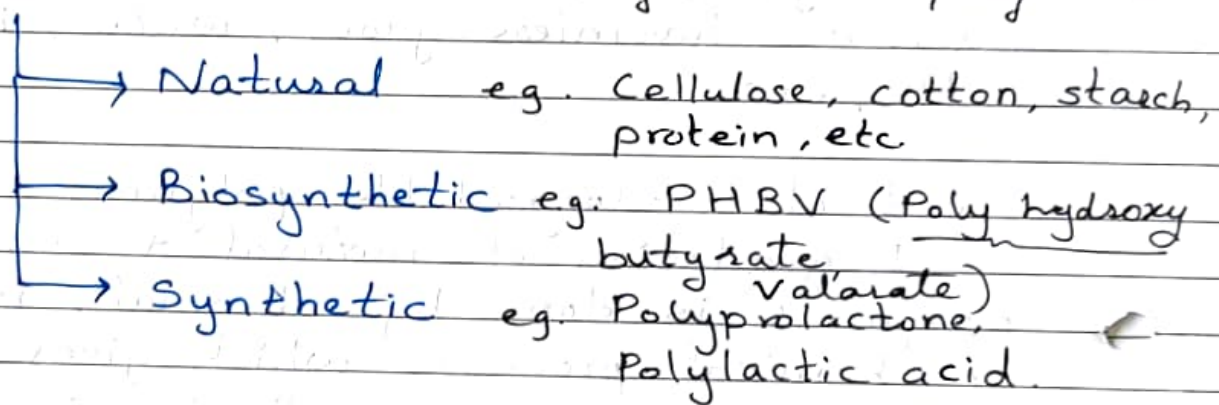 Natural eg. Cellulose, cotton, starch,
protein, etc
Biosynthetic eg: PHBV (Poly hydroxy
butyrate
valarate)
Synthetic eg. Polyprolactone,
Polylactic acid.